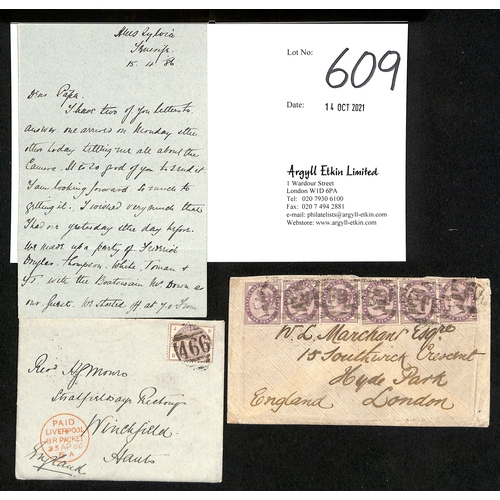 Miss Sylvia
Teneriffe
15. 4. 86
Dear Papa.
I have two of your letters to
answer one arrived on Monday & the
other today telling me all about the
Canoe. It is so good of you to send it
I am looking forward so much to
getting it. I wished very much that
I had one yesterday & the day before.
We made up a party of
Thompson. White. Toman &
I with the Boatswain Mr Down as
our guest. We started off at 7.0 from
Lot No: 609
Date: 14 OCT 2021
Argyll Etkin Limited
1 Wardour Street
London W1D 6PA
Tel: 020 7930 6100
Fax: 020 7 494 2881
e-mail: philatelists@argyll-etkin.com
Webstore: www.argyll-etkin.com
466
Revd A J Monro
Stratfieldsaye Rectory
Winchfield
Hants
England
PAID
LIVERPOOL
BR. PACKET
23 AP 86
5 A
W. L. Marchant Esqre
15 Southwick Crescent
Hyde Park
London
England